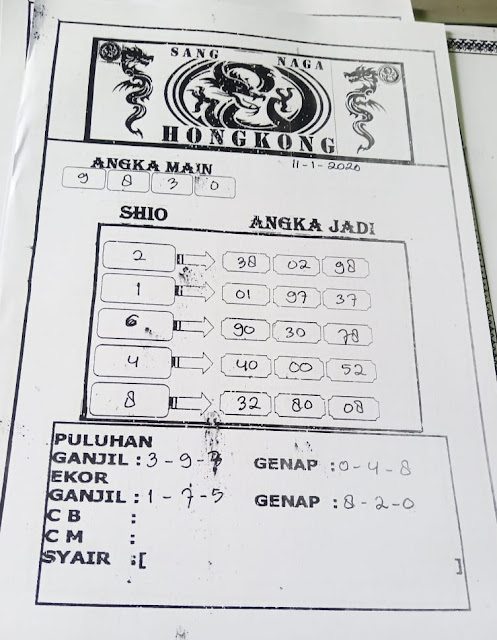 SANG NAGA
HONGKONG
11-1-2020
ANGKA MAIN
9 8 3 0
SHIO ANGKA JADI
2 38 02 98
1 01 97 37
6 90 30 78
4 40 00 52
8 32 80 08
PULUHAN
GANJIL : 3 - 9 - GENAP : 0 - 4 - 8
EKOR
GANJIL : 1 - 7 - 5 GENAP : 8 - 2 - 0
C B :
C M :
SYAIR :[ ]